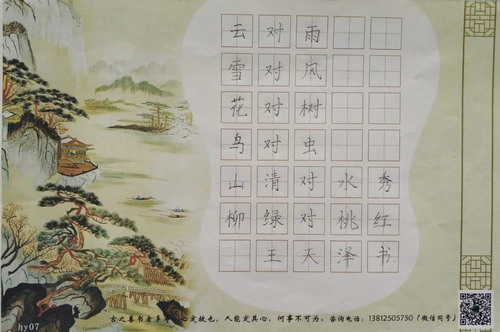 云对雨
雪对风
花对树
鸟对虫
山清对水秀
柳绿对桃红
王天泽书
古之善书者多寿，心定故也，人能定其心，何事不可为。咨询电话：13812505750（微信同号）
hy07